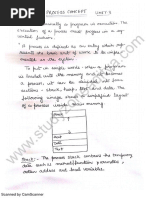 PROCESS CONCEPT UNIT-3
A process normally is program in execution. The
execution of a process must progress in a sequ-
ential fashion.
A process is defined as an entity which repr-
esent the basic unit of work to be imple-
mented in the system.
To put in simple words, when a program
is loaded into the memory and it becomes
process, it can be divided into four sections.
The following image shows a simplified layout
of a process inside main memory
Stack
Heap
Data
Text
Stack: The process stack contains the temporary
data such as method/function parameters,
return address and local variables.
Scanned by CamScanner